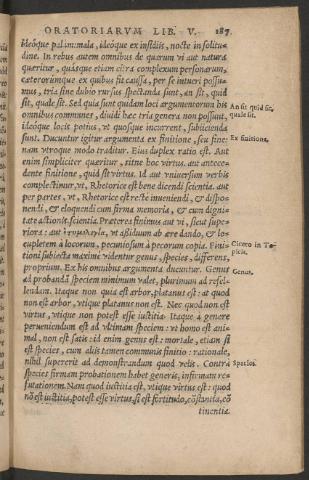 ORATORIARVM LIB. V. 187
ideóque palàm: mala, ideóque ex insidiis, nocte in solitu-
dine. In rebus autem omnibus de quarum vi aut natura
quæritur, quásque etiam citra complexum personarum,
cæterorúmque ex quibus fit caussa, per se intueri possu-
mus, tria sine dubio rursus spectanda sunt, an sit, quid
sit, quale sit. Sed quia sunt quidam loci argumentorum his
An sit quid sit,
omnibus communes, diuidi hæc tria genera non possunt,
quale sit.
ideóque locis potius, vt quosque incurrent, subiicienda
sunt. Ducuntur igitur argumenta ex finitione, seu fine:
Ex finitione.
nam vtroque modo traditur. Eius duplex ratio est. Aut
enim simpliciter quæritur, sitne hoc virtus. aut antece-
dente finitione, quid sit virtus. Id aut vniuersum verbis
complectimur, vt, Rhetorice est bene dicendi scientia. aut
per partes, vt, Rhetorice est rectè inueniendi, & dispo-
nendi, & eloquendi cum firma memoria, & cum digni-
tate actionis scientia. Præterea finimus aut vi, sicut supe-
riora: aut ἐτυμολογία, vt assiduum ab ære dando, & lo-
cupletem à locorum, pecuniosum à pecorum copia. Fini-
Cicero in To-
tioni subiecta maximè videntur genus, species, differens,
picis.
proprium. Ex his omnibus argumenta ducuntur. Genus
Genus.
ad probandā speciem minimum valet, plurimum ad refel-
lendam. Itaque non quia est arbor, platanus est: at quod
non est arbor, vtique platanus non est. Nec quod non est
virtus, vtique non potest esse iustitia. Itaque à genere
perueniendum est ad vltimam speciem: vt homo est ani-
mal, non est satis: id enim genus est: mortale, etiam si
est species, cum aliis tamen communis finitio: rationale,
nihil supererit ad demonstrandum quod velis. Contrà
Species.
species firmam probationem habet generis, infirmam re-
futationem. Nam quod iustitia est, vtique virtus est: quod
nō est iustitia, potest esse virtus, si est fortitudo, cōstantia, cō
tinentia.